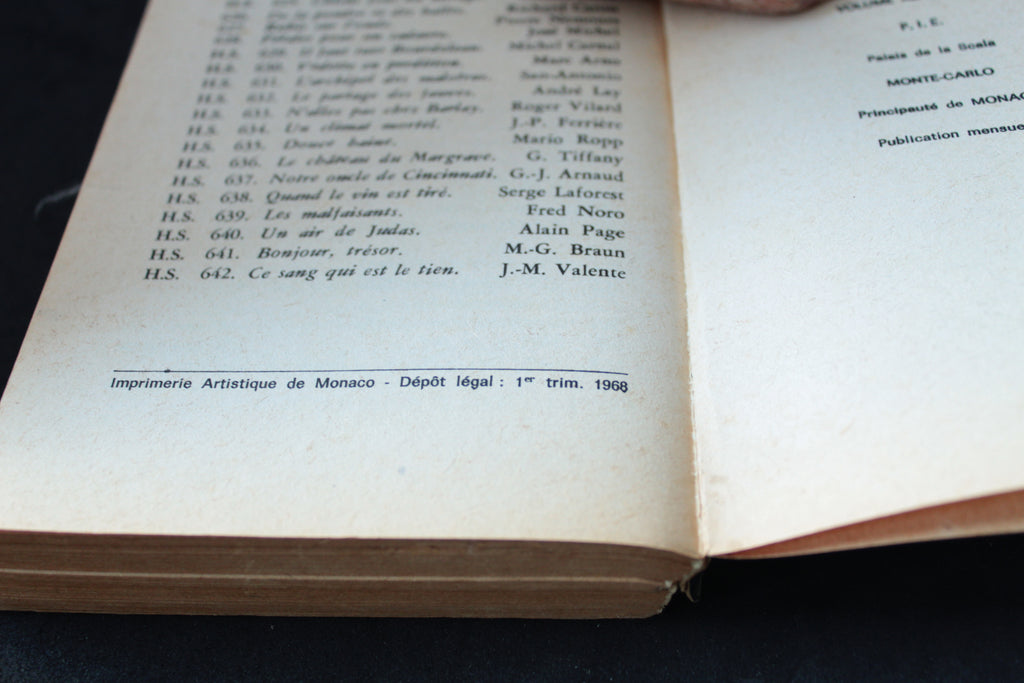 José Michel
Michel Carnal
Marc Arno
H.S. 631. L'archipel des San-Antonio
H.S. 632. Le partage des fauves. André Lay
H.S. 633. N'allez pas chez Barlay. Roger Vilard
H.S. 634. Un climat mortel. J.-P. Ferrière
H.S. 635. Douce haine. Mario Ropp
H.S. 636. Le château du Margrave. G. Tiffany
H.S. 637. Notre oncle de Cincinnati. G.-J. Arnaud
H.S. 638. Quand le vin est tiré. Serge Laforest
H.S. 639. Les malfaisants. Fred Noro
H.S. 640. Un air de Judas. Alain Page
H.S. 641. Bonjour, trésor. M.-G. Braun
H.S. 642. Ce sang qui est le tien. J.-M. Valente
Imprimerie Artistique de Monaco - Dépôt légal : 1er trim. 1968
VOLUME
P. I. E.
Palais de la Scala
MONTE-CARLO
Principauté de MONAC
Publication mensue